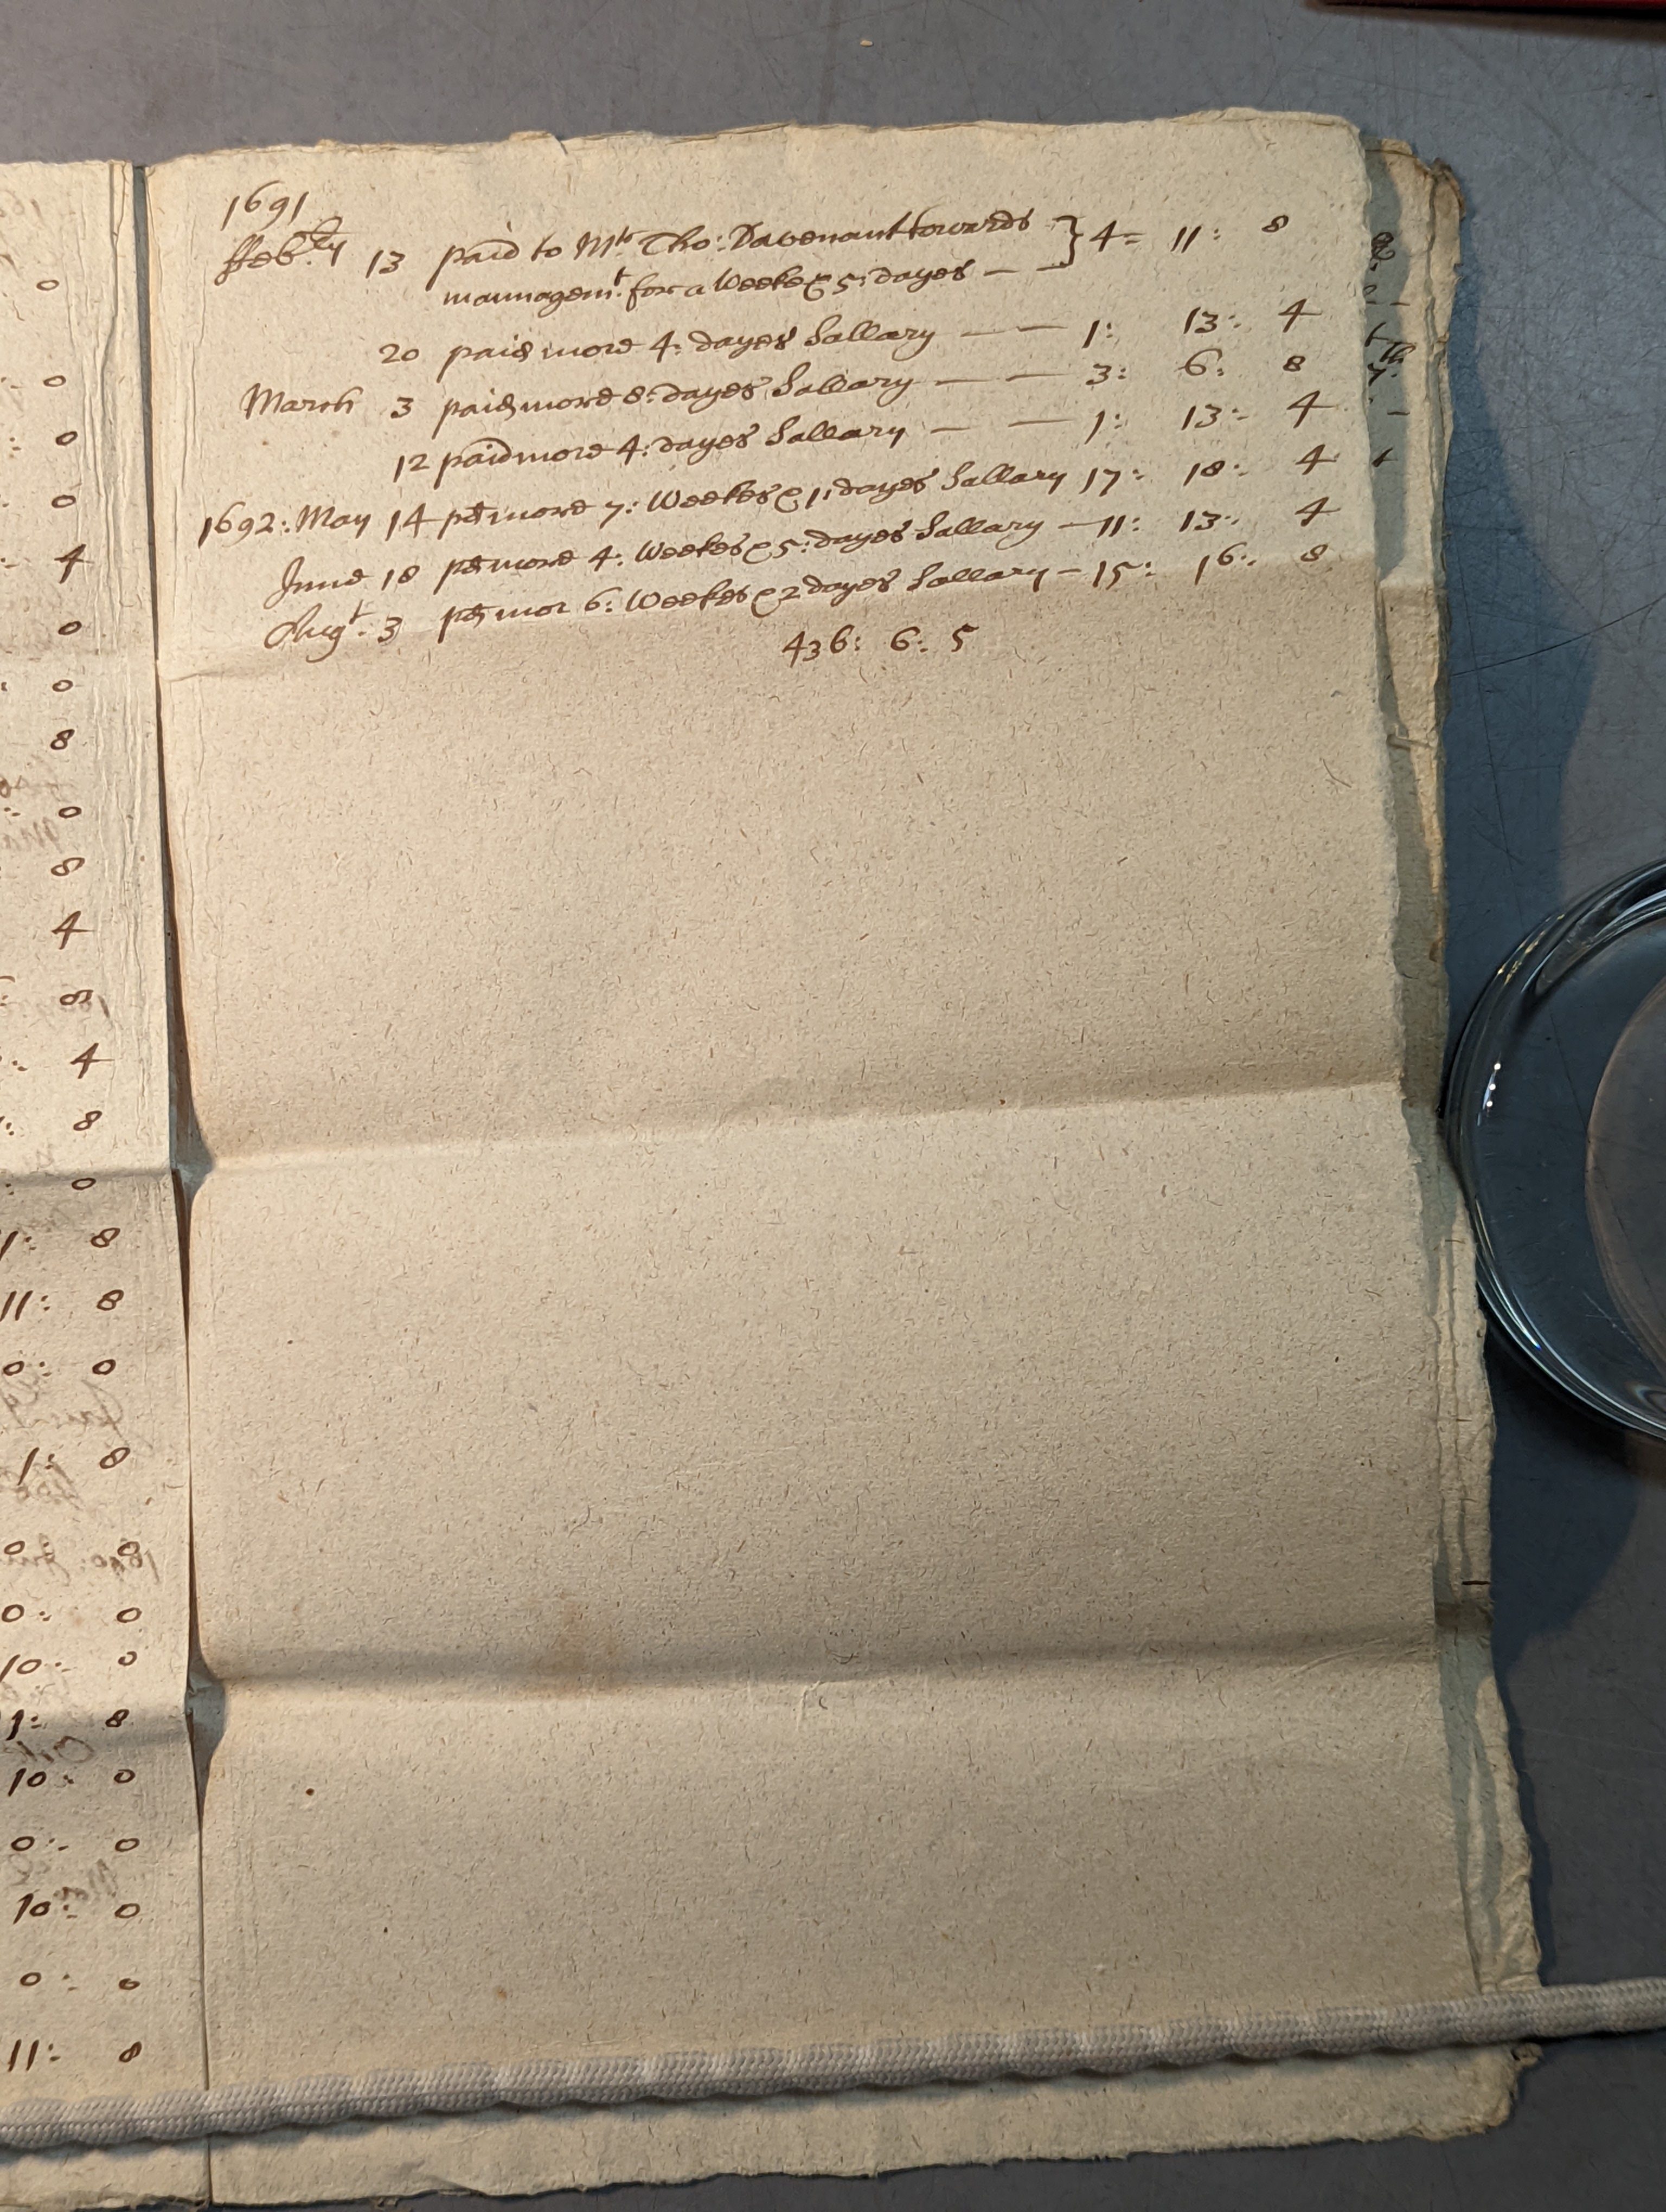 1691
ffeb:ry 13 paid to Mr. Tho: Davenant towards } 4= 11: 8
mannagemt. for a Weeke & 5: dayes — —
20 paid more 4: dayes Sallary — — 1: 13: 4
March 3 paid more 8: dayes Sallary — — 3: 6: 8
12 paid more 4: dayes Sallary — — 1: 13: 4
1692: May 14 pd more 7: Weekes & 1: dayes Sallary 17: 18: 4
June 18 pd more 4: Weekes & 5: dayes Sallary — 11: 13: 4
Augt. 3 pd mor 6: Weekes & 2 dayes Sallary — 15: 16: 8
436: 6: 5
0
0
: 0
0
:- 4
0
: 0
8
: 0
8
4
8
: 4
: 8
: 0
1: 8
11: 8
0: 0
1: 8
0 8
0: 0
10: 0
1: 8
10: 0
0: 0
10: 0
0: 0
11: 8